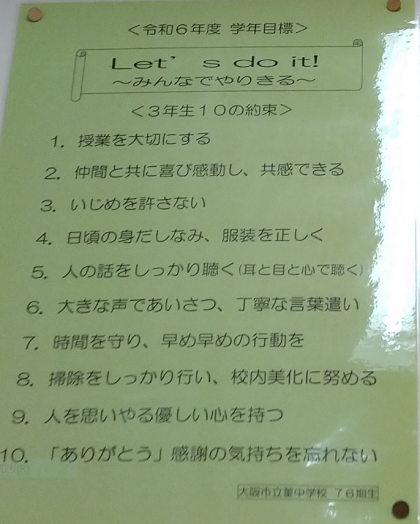 ＜令和６年度 学年目標＞
Let’s do it!
～みんなでやりきる～
＜３年生１０の約束＞
1．授業を大切にする
2．仲間と共に喜び感動し、共感できる
3．いじめを許さない
4．日頃の身だしなみ、服装を正しく
5．人の話をしっかり聴く(耳と目と心で聴く)
6．大きな声であいさつ、丁寧な言葉遣い
7．時間を守り、早め早めの行動を
8．掃除をしっかり行い、校内美化に努める
9．人を思いやる優しい心を持つ
10．「ありがとう」感謝の気持ちを忘れない
大阪市立董中学校 ７６期生